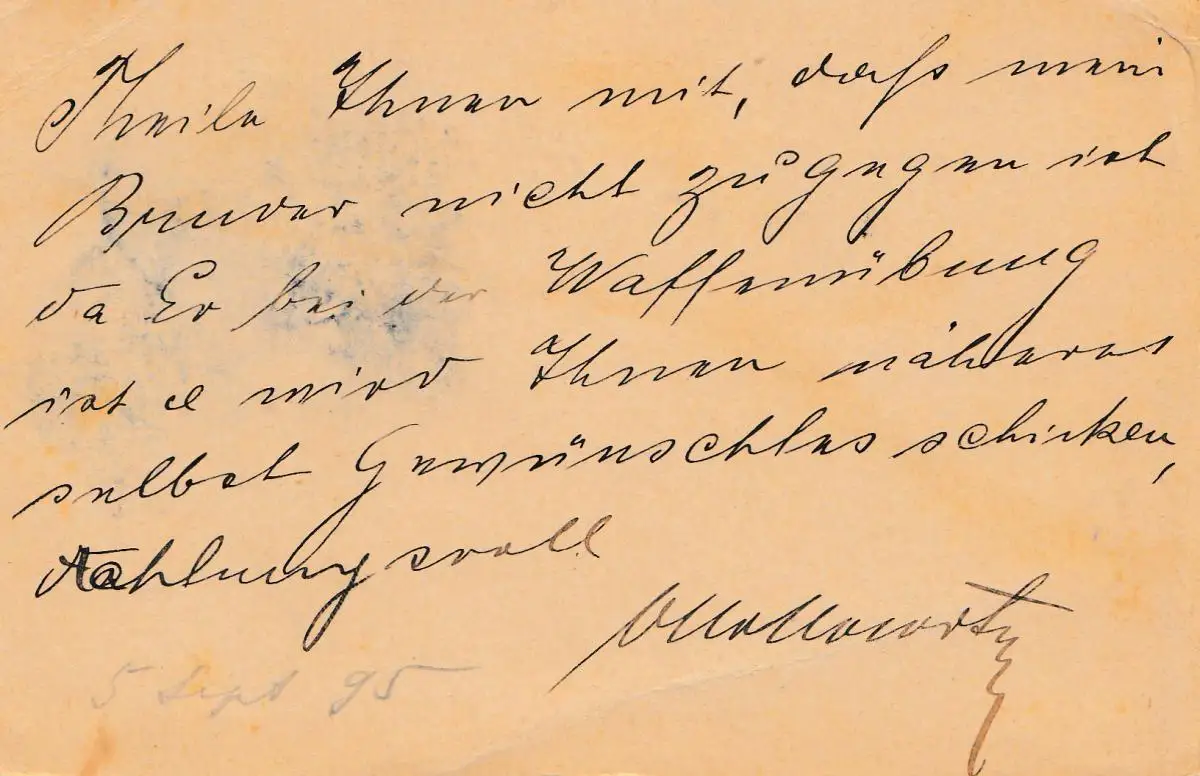 Theile Ihnen mit, daß mein
Bruder nicht zugegen ist
da Er bei der Waffenübung
ist & wird Ihnen näheres
selbst Gewünschtes schicken,
Achtungsvoll
5 Sept 95